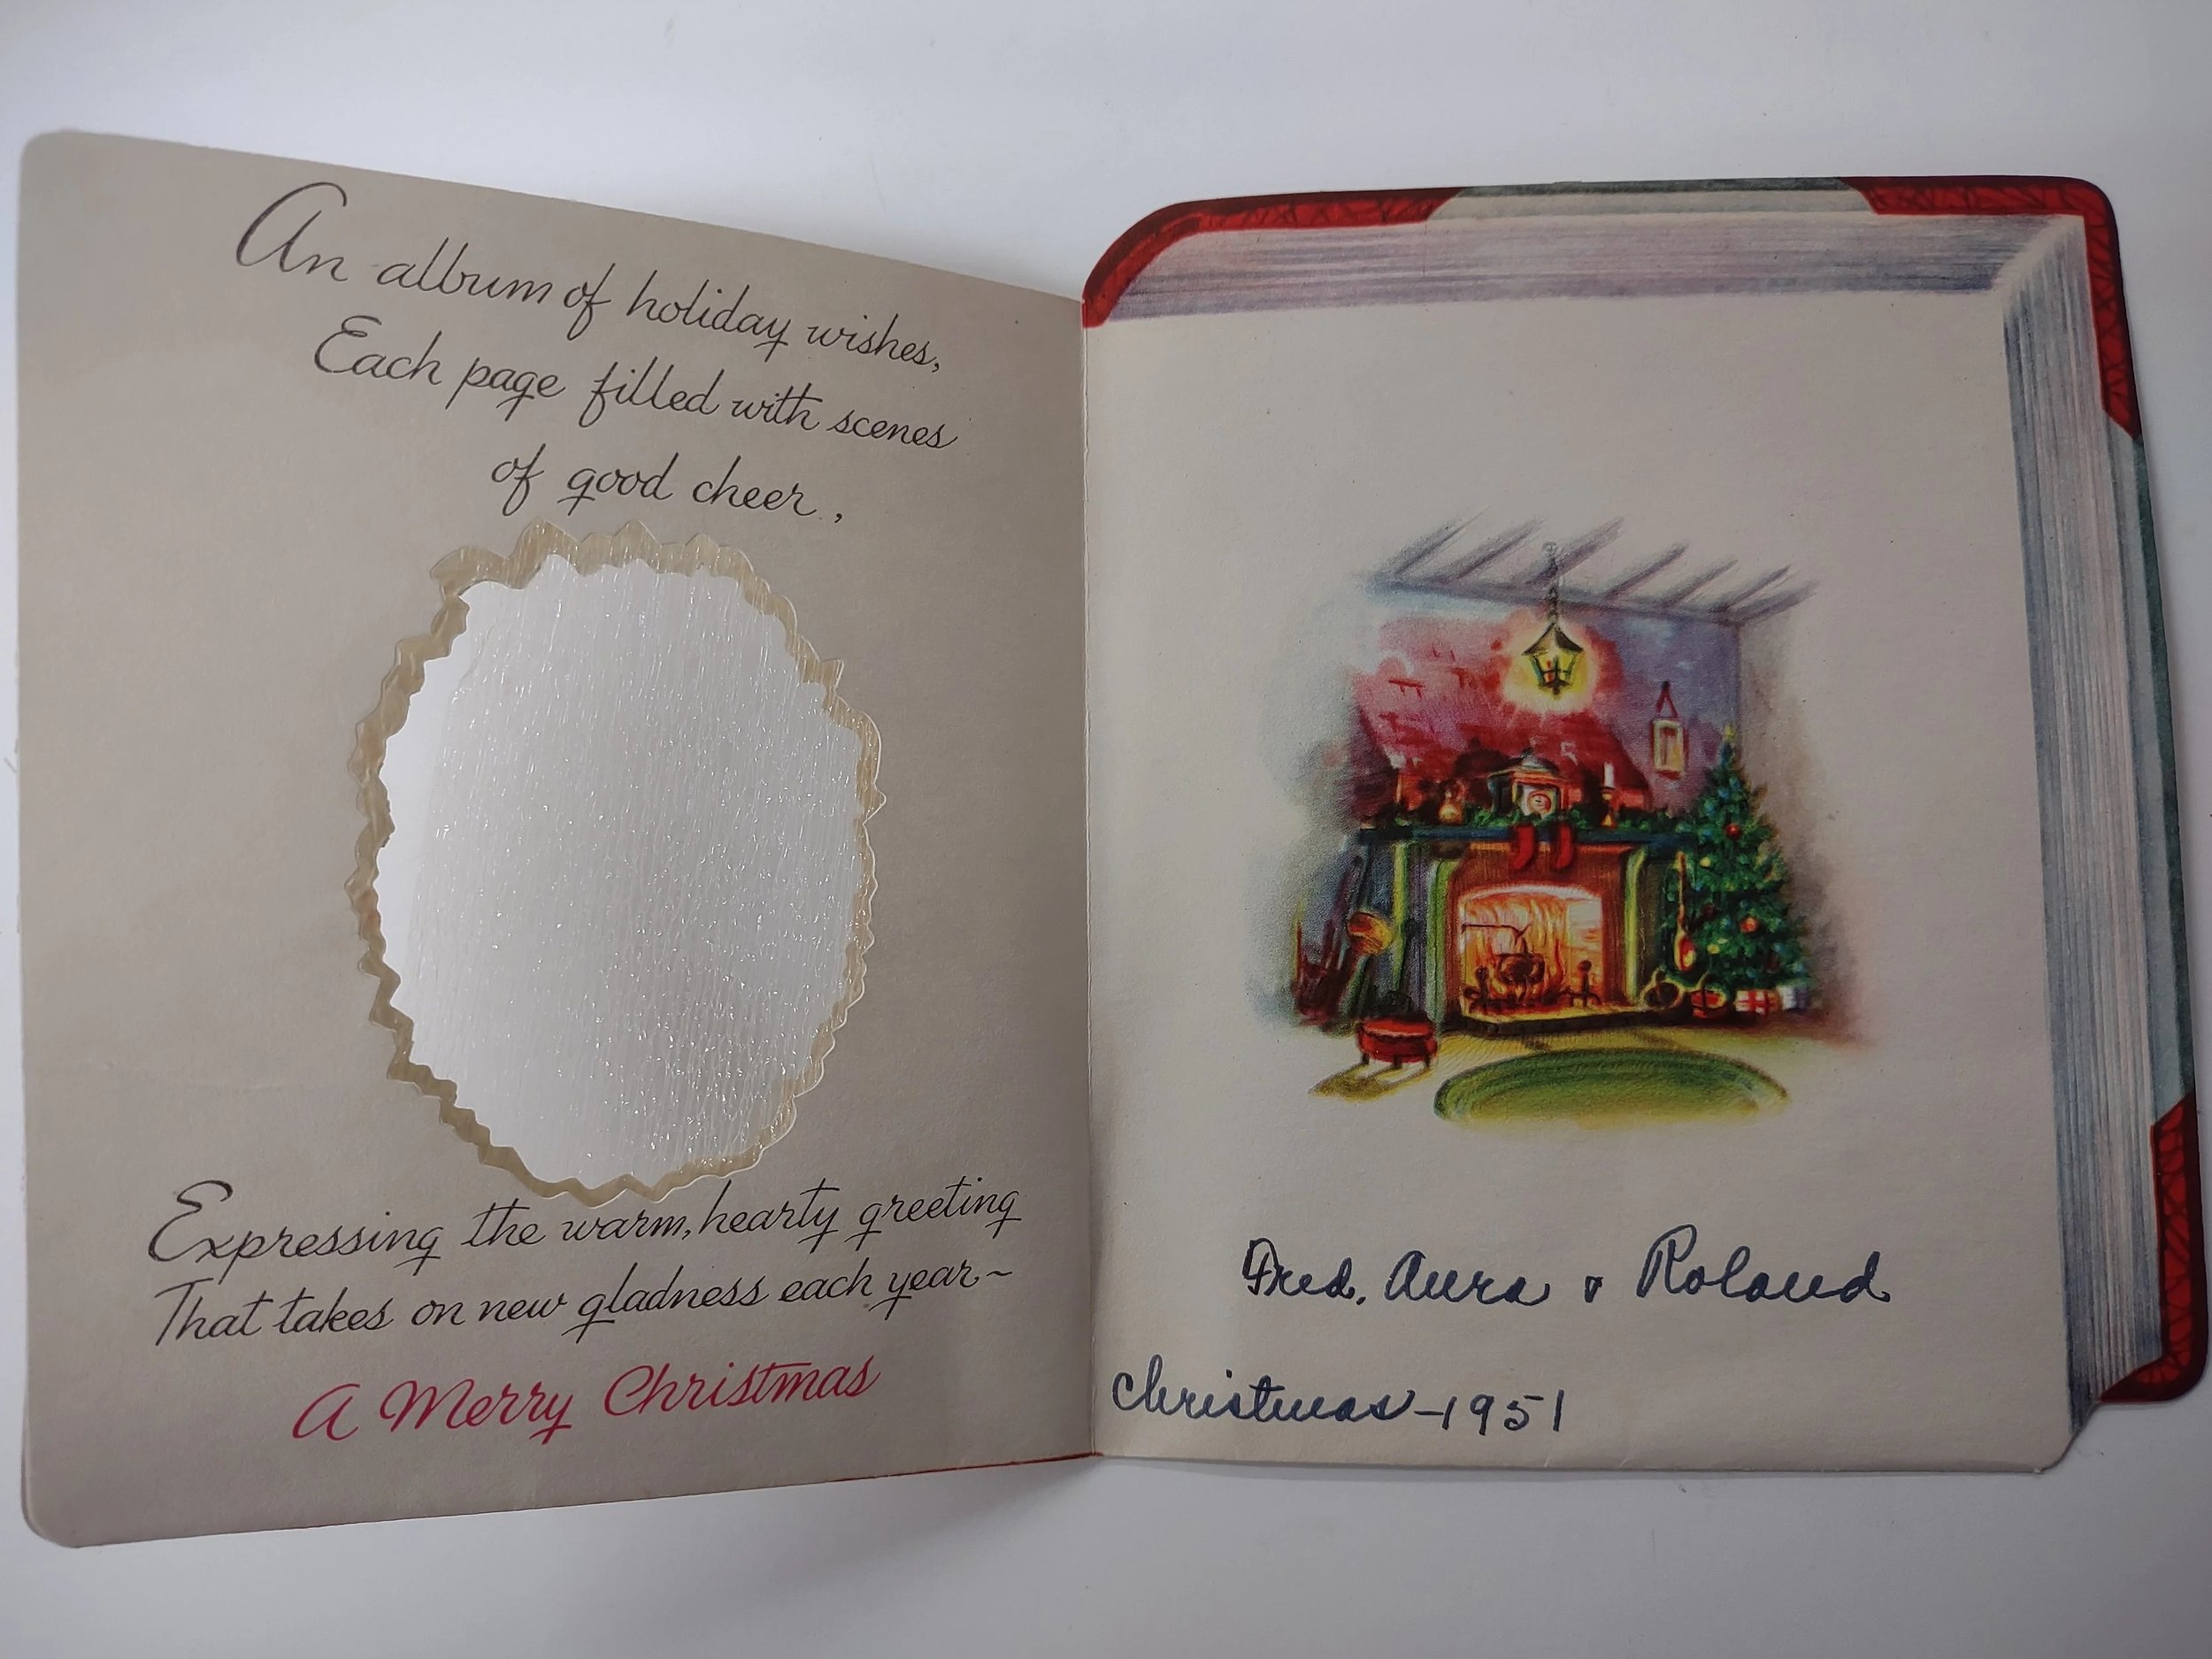 An album of holiday wishes,
Each page filled with scenes
of good cheer,
Expressing the warm, hearty greeting
That takes on new gladness each year~
A Merry Christmas
Fred, Aura & Roland
Christmas-1951